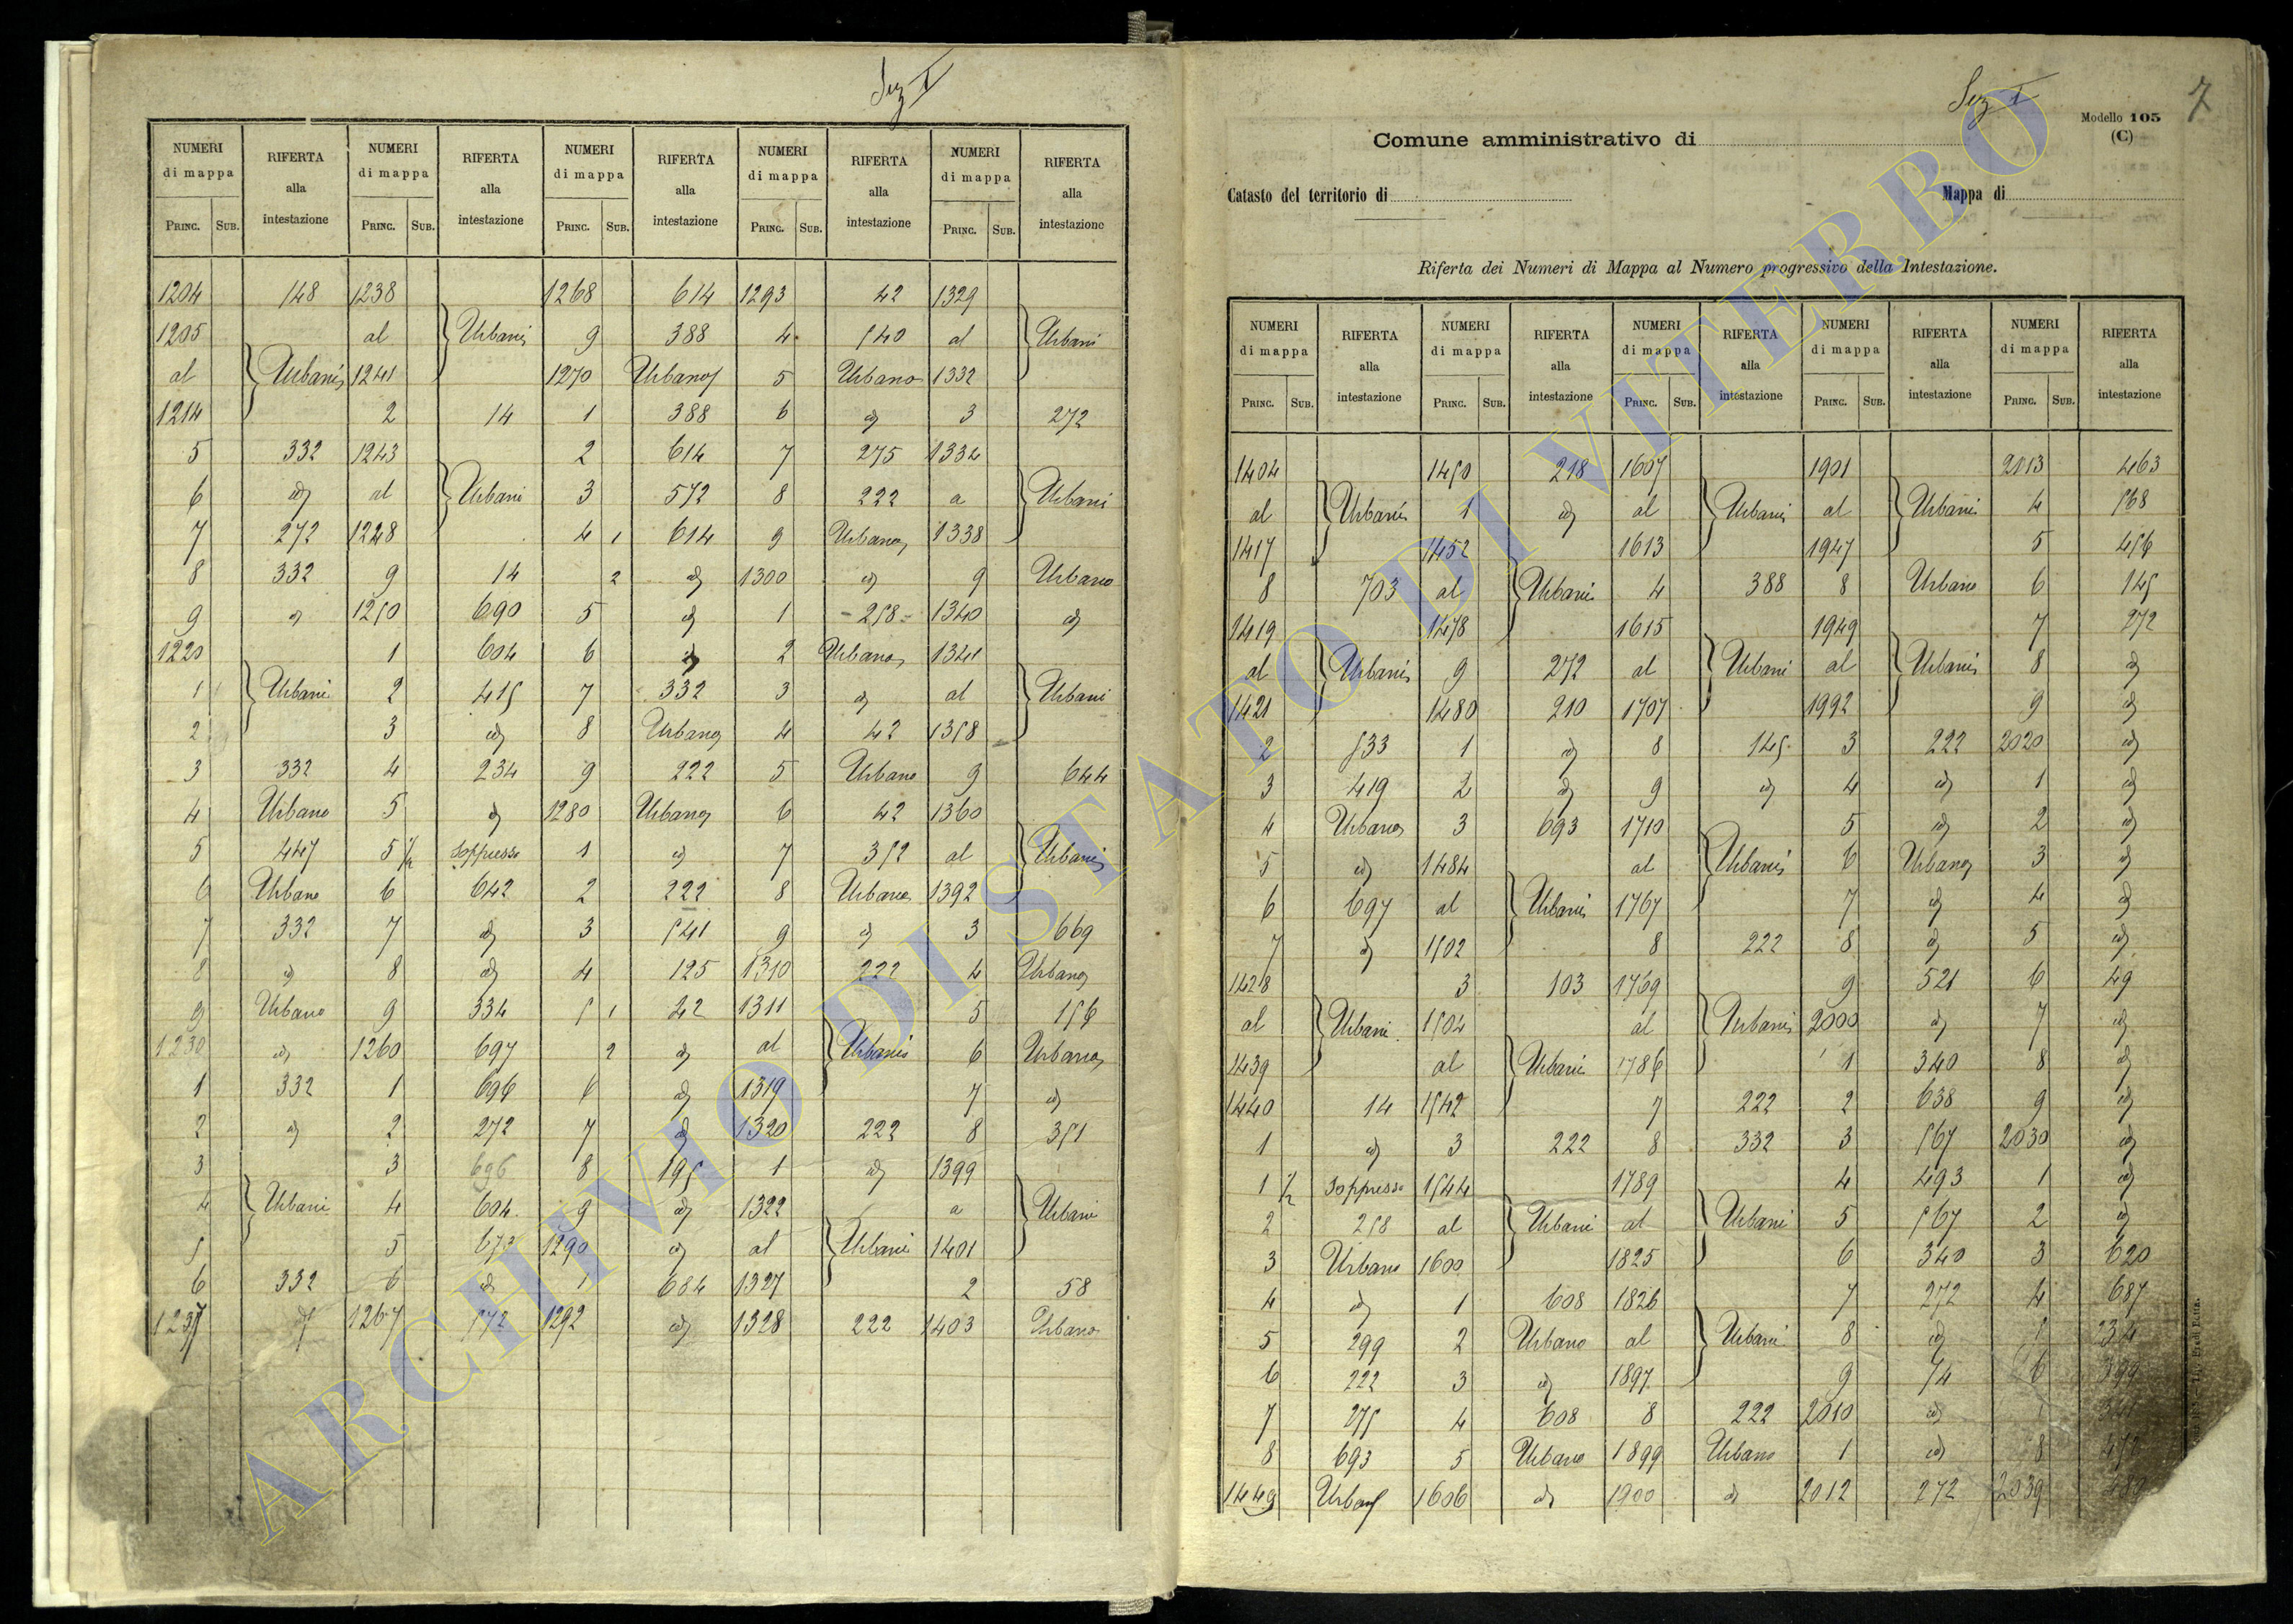 Sez I
NUMERI di mappa RIFERTA alla intestazione NUMERI di mappa RIFERTA alla intestazione NUMERI di mappa RIFERTA alla intestazione NUMERI di mappa RIFERTA alla intestazione NUMERI di mappa RIFERTA alla intestazione
PRINC. SUB. PRINC. SUB. PRINC. SUB. PRINC. SUB. PRINC. SUB.
1204 148 1238 1268 614 1293 42 1329
1205 al Urbani 9 388 4 540 al Urbani
al Urbani 1241 1270 Urbano 5 Urbano 1332
1214 2 14 1 388 6 id 3 272
5 332 1243 2 614 7 275 1334
6 id al Urbani 3 572 8 222 a Urbani
7 272 1248 4 1 614 9 Urbano 1338
8 332 9 14 2 id 1300 id 9 Urbano
9 id 1250 690 5 id 1 258 1340 id
1220 1 604 6 id 2 Urbano 1341
1 Urbani 2 415 7 332 3 id al Urbani
2 3 id 8 Urbano 4 42 1358
3 332 4 234 9 222 5 Urbano 9 644
4 Urbano 5 id 1280 Urbano 6 42 1360
5 447 5 1/2 soppresso 1 id 7 352 al Urbani
6 Urbano 6 642 2 222 8 Urbano 1392
7 332 7 id 3 541 9 id 3 669
8 id 8 id 4 125 1310 222 4 Urbano
9 Urbano 9 334 5 1 42 1311 5 156
1230 id 1260 697 2 id al Urbani 6 Urbano
1 332 1 696 6 id 1319 7 id
2 id 2 272 7 id 1320 222 8 351
3 3 696 8 195 1 id 1399
4 Urbani 4 604 9 id 1322 a Urbani
5 5 673 1290 id al Urbani 1401
6 332 6 id 1 684 1327 2 58
1237 id 1267 572 1292 id 1328 222 1403 Urbano
Sez I
7
Modello 105
(C)
Comune amministrativo di
Catasto del territorio di Mappa di
Riferta dei Numeri di Mappa al Numero progressivo della Intestazione.
NUMERI di mappa RIFERTA alla intestazione NUMERI di mappa RIFERTA alla intestazione NUMERI di mappa RIFERTA alla intestazione NUMERI di mappa RIFERTA alla intestazione NUMERI di mappa RIFERTA alla intestazione
PRINC. SUB. PRINC. SUB. PRINC. SUB. PRINC. SUB. PRINC. SUB.
1404 1450 218 1607 1901 2013 463
al Urbani 1 id al Urbani al Urbani 4 568
1417 1452 1613 1947 5 456
8 703 al Urbani 4 388 8 Urbano 6 145
1419 1478 1615 1949 7 272
al Urbani 9 272 al Urbani al Urbani 8 id
1421 1480 210 1707 1992 9 id
2 533 1 id 8 145 3 222 2020 id
3 419 2 id 9 id 4 id 1 id
4 Urbano 3 693 1710 5 id 2 id
5 id 1484 al Urbani 6 Urbano 3 id
6 697 al Urbani 1767 7 id 4 id
7 id 1502 8 222 8 id 5 id
1428 3 103 1769 9 521 6 49
al Urbani 1504 al Urbani 2000 id 7 id
1439 al Urbani 1786 1 340 8 id
1440 14 1542 7 222 2 638 9 id
1 id 3 222 8 332 3 567 2030 id
1 1/2 soppresso 1544 1789 4 493 1 id
2 258 al Urbani al Urbani 5 567 2 id
3 Urbano 1600 1825 6 340 3 620
4 id 1 608 1826 7 272 4 687
5 299 2 Urbano al Urbani 8 id 5 234
6 222 3 id 1897 9 74 6 399
7 275 4 608 8 222 2010 id
8 693 5 Urbano 1899 Urbano 1 id 8
1449 Urbano 1606 id 1900 id 2012 272 2039
ARCHIVIO DI STATO DI VITERBO